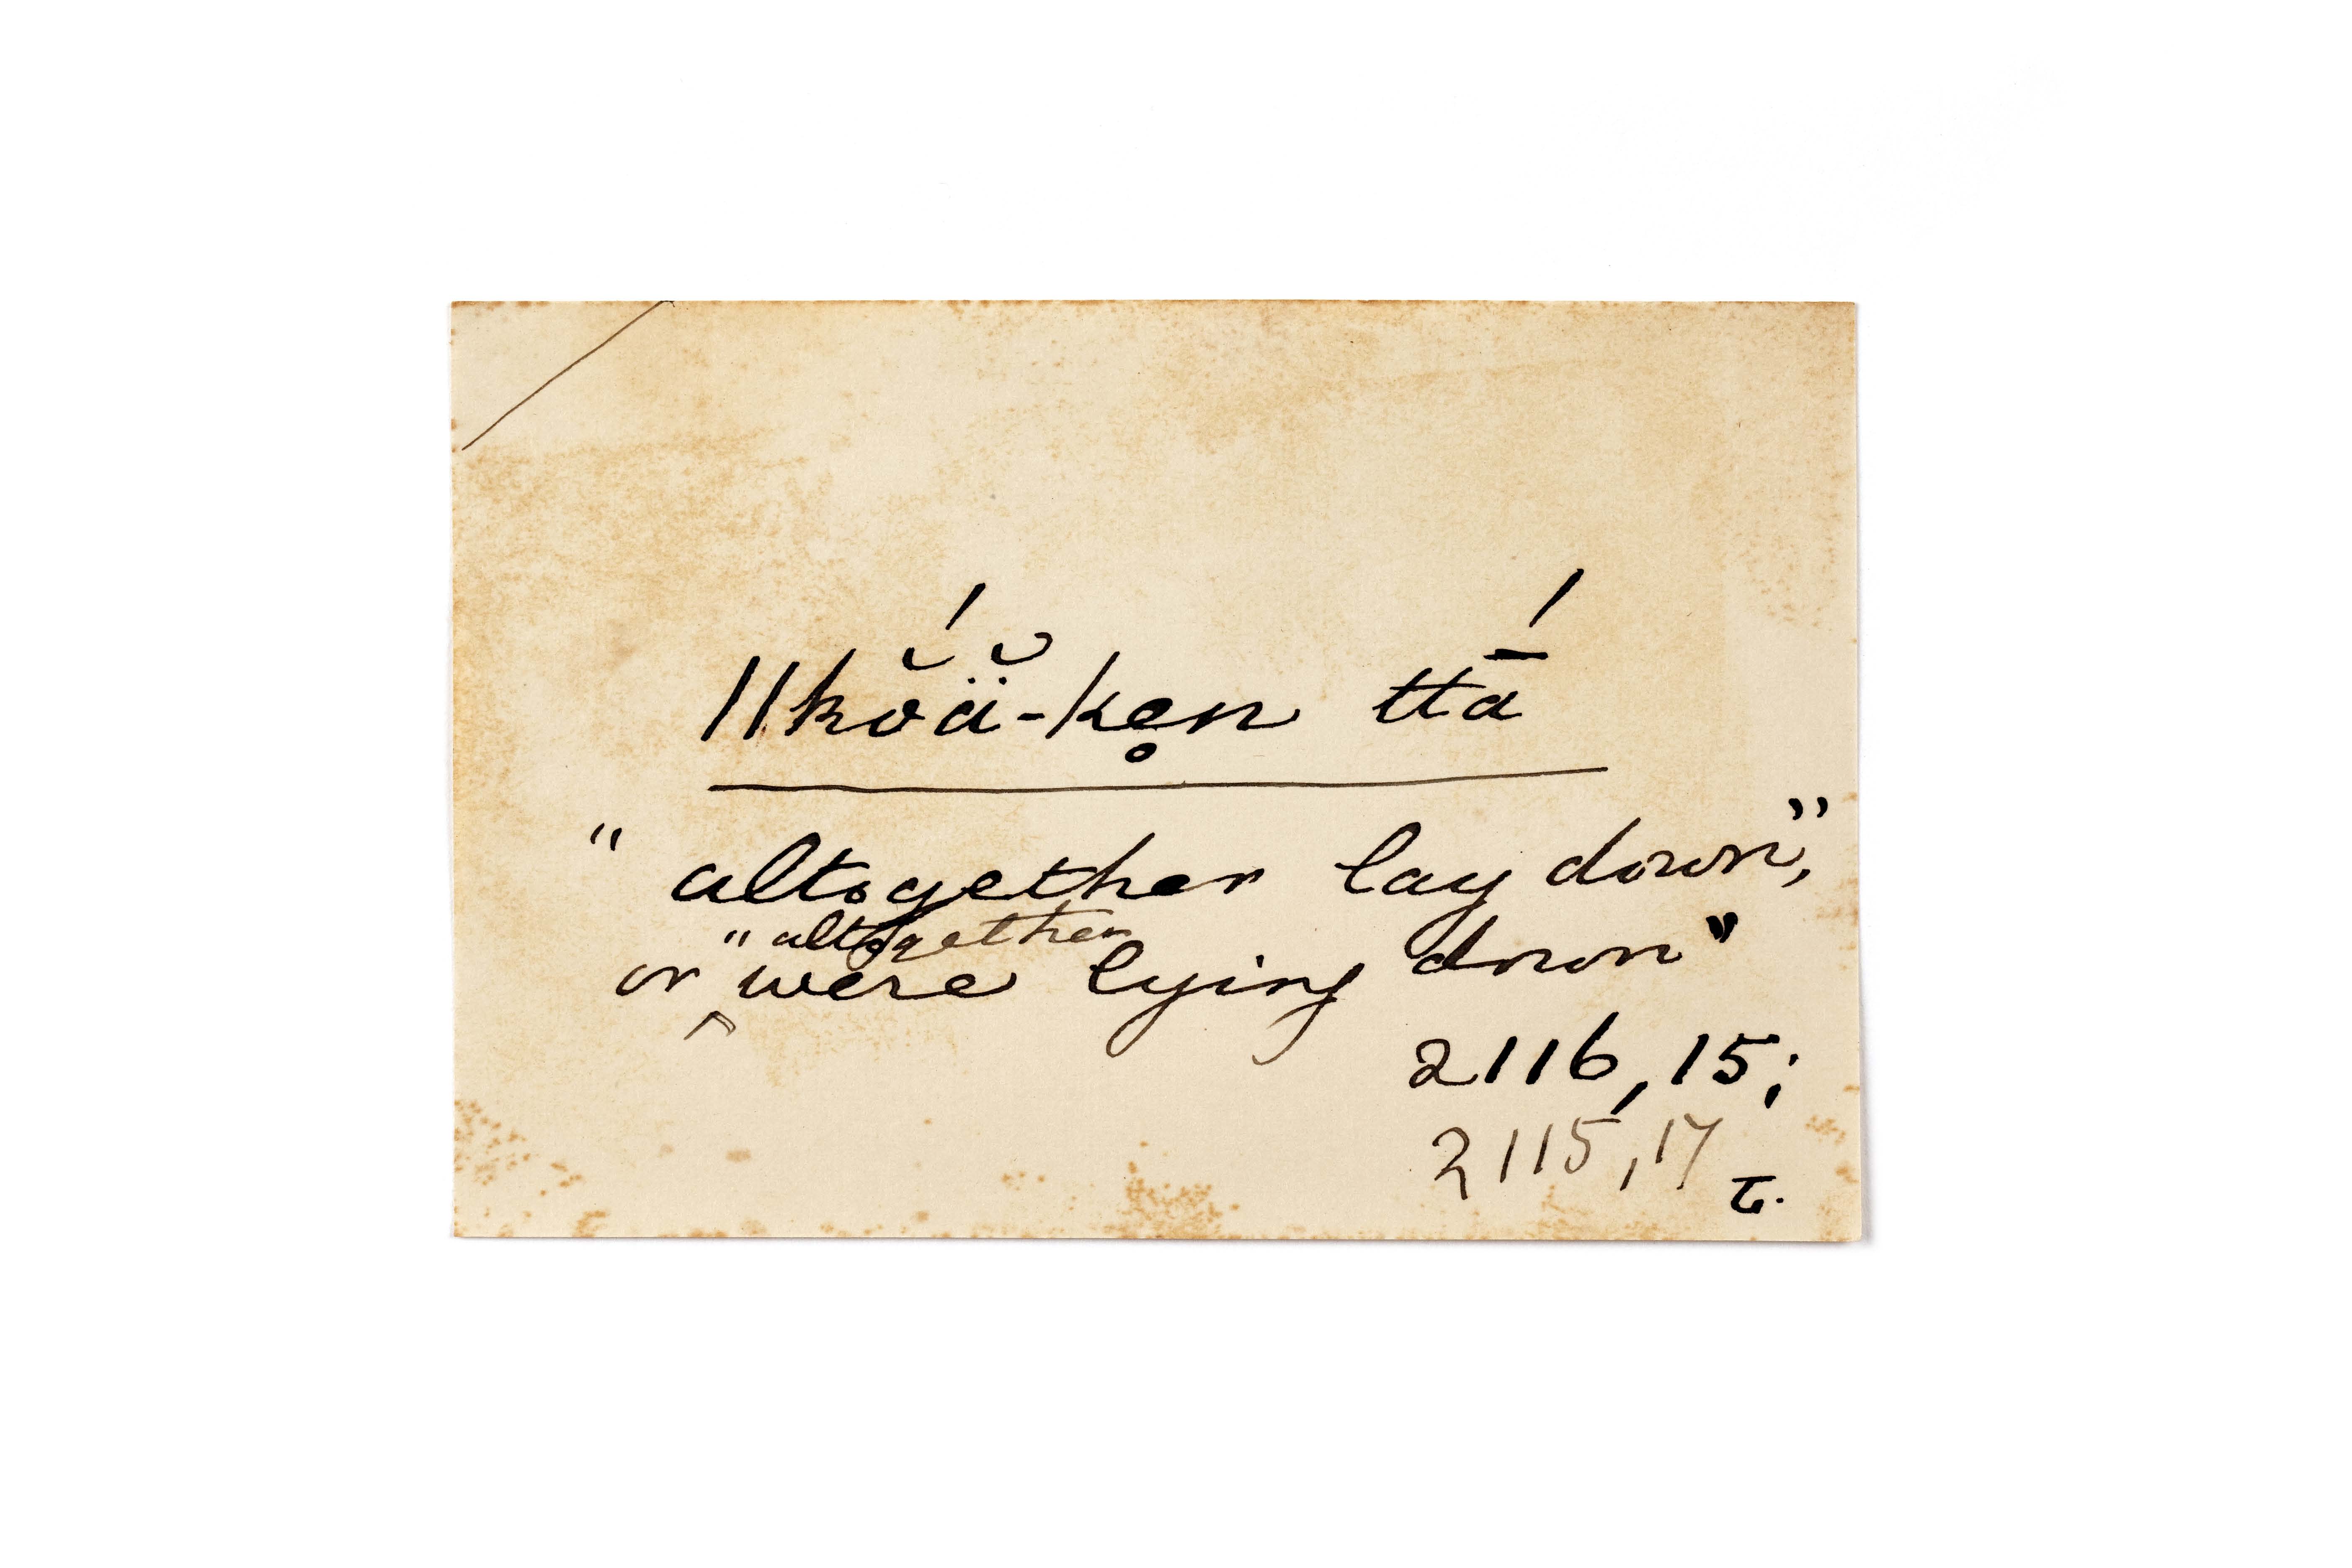 ǁkŏ́ä̆-ke̥n ttā́
" altogether lay down",
" altogether
or ‸ were lying down"
2116, 15;
2115, 17